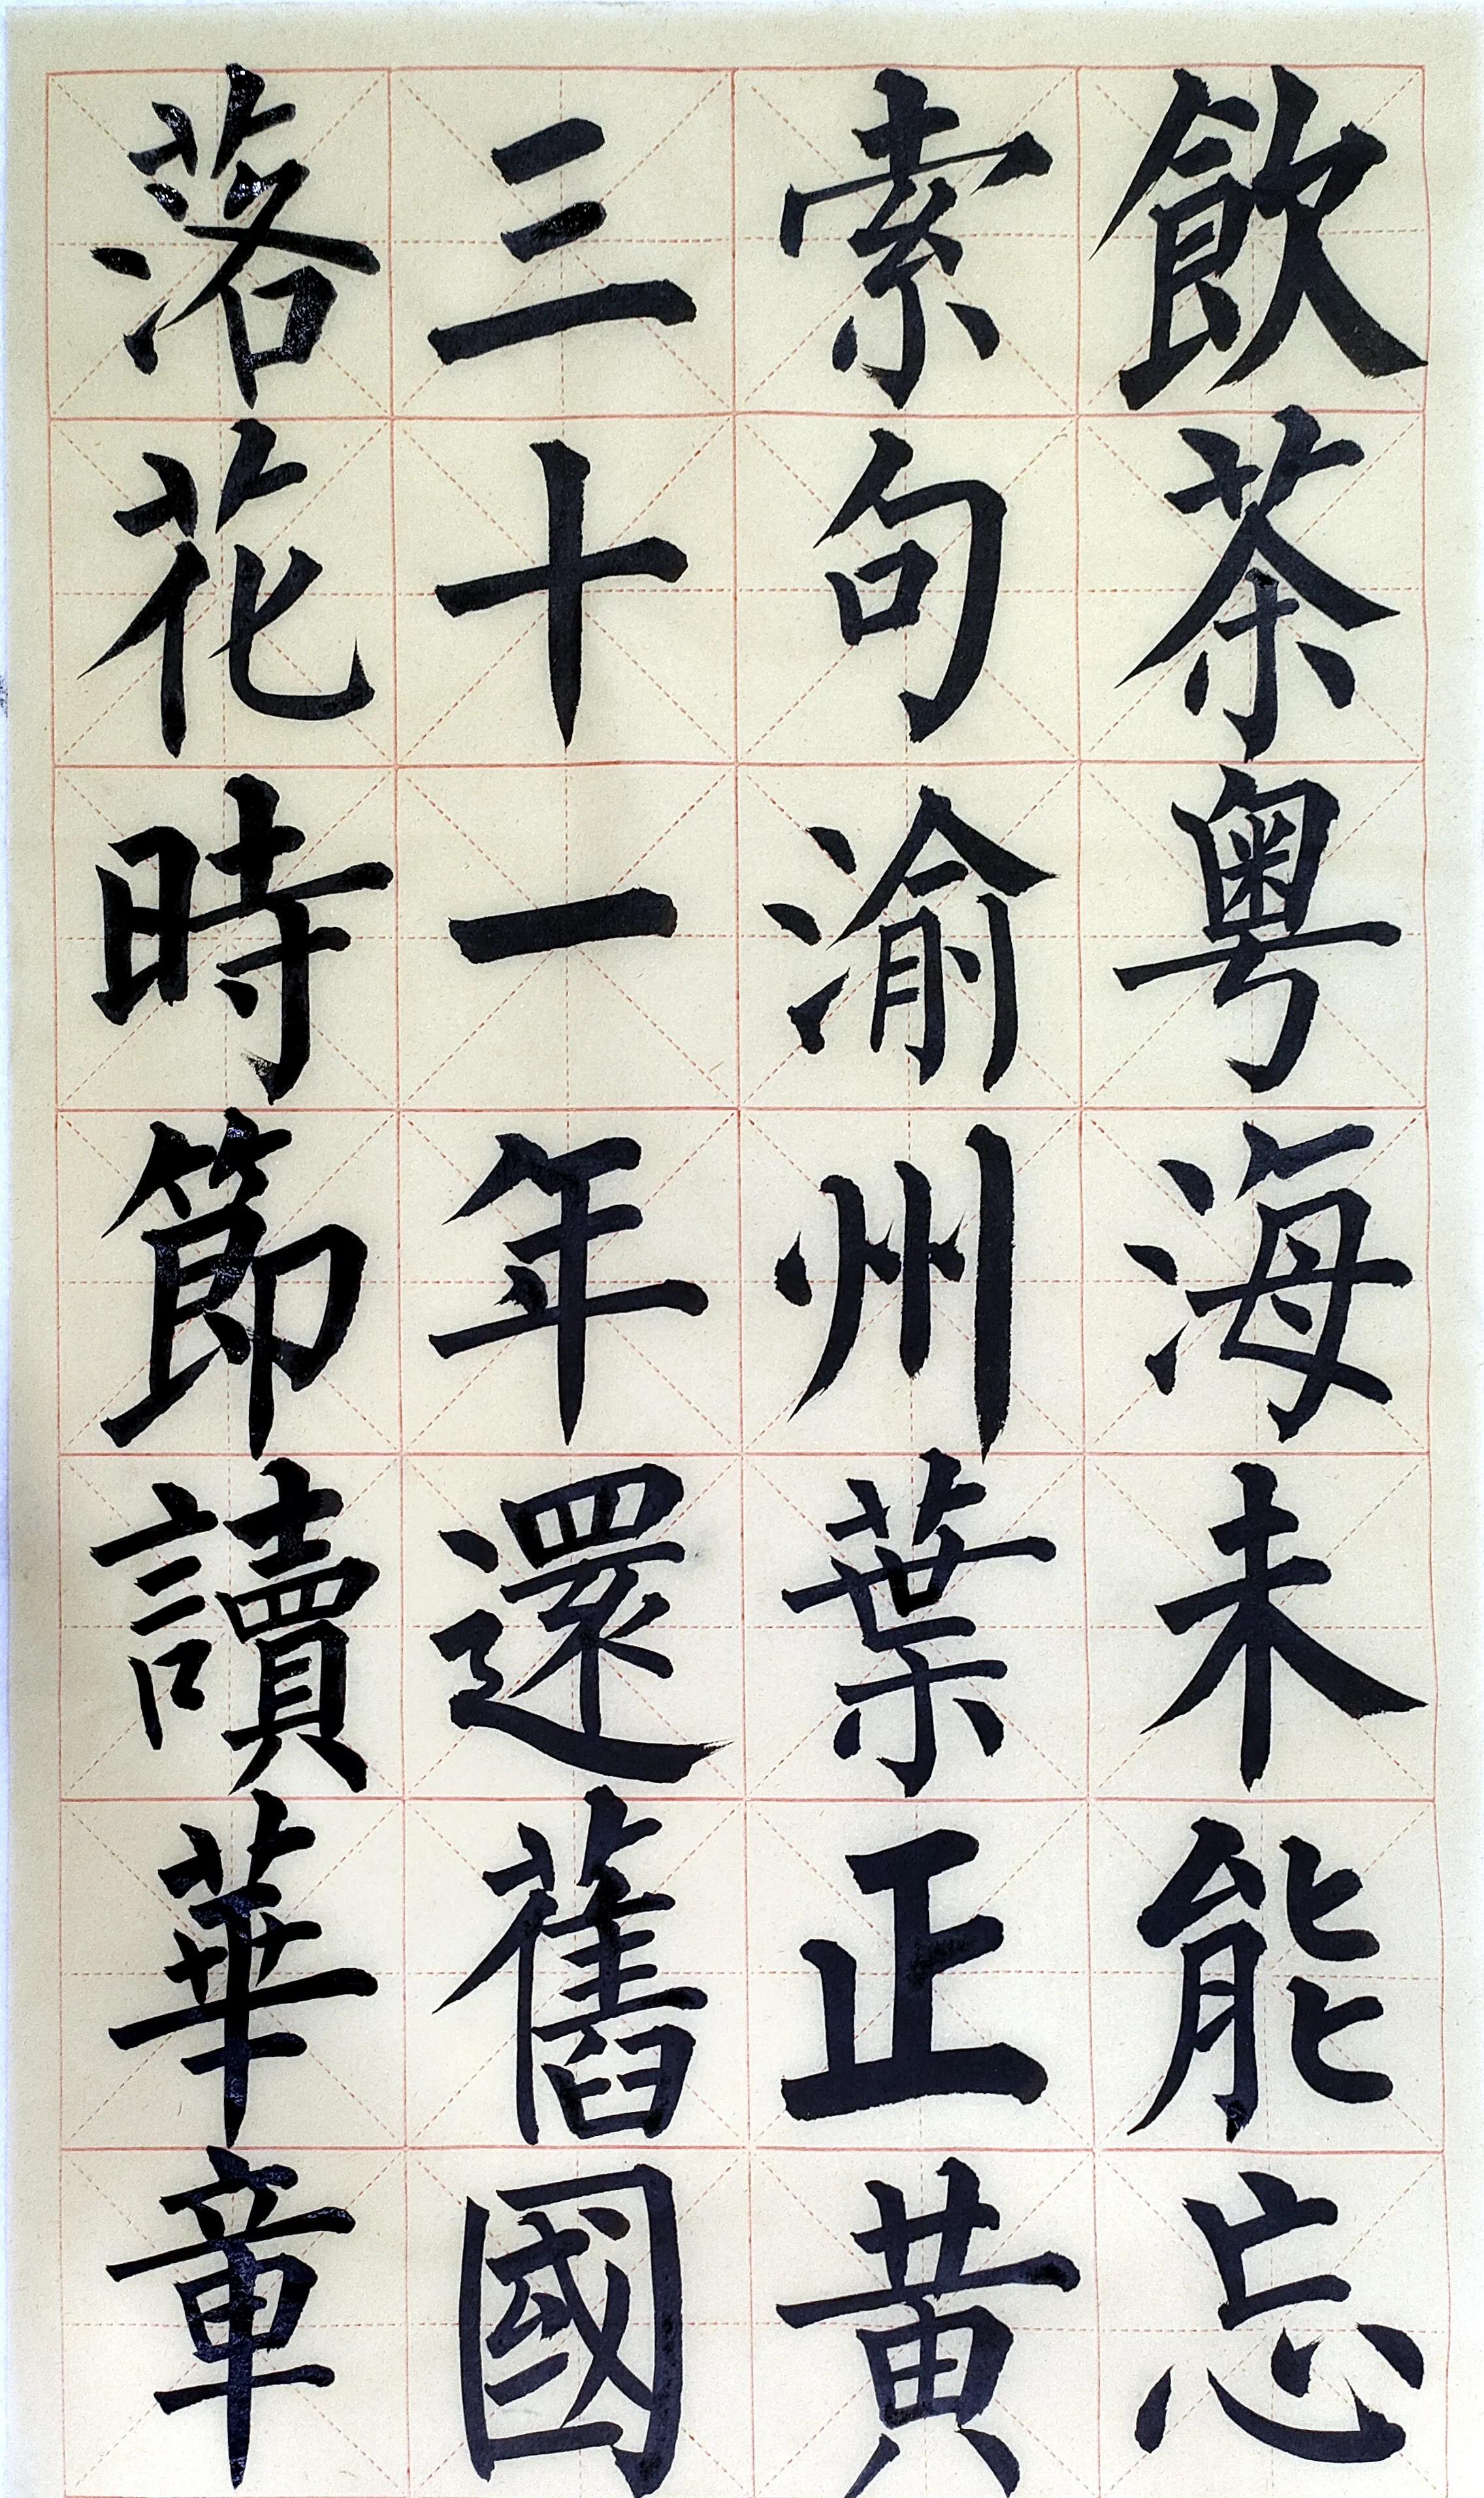 飲茶粤海未能忘
索句渝州葉正黄
三十一年還舊國
落花時節讀華章